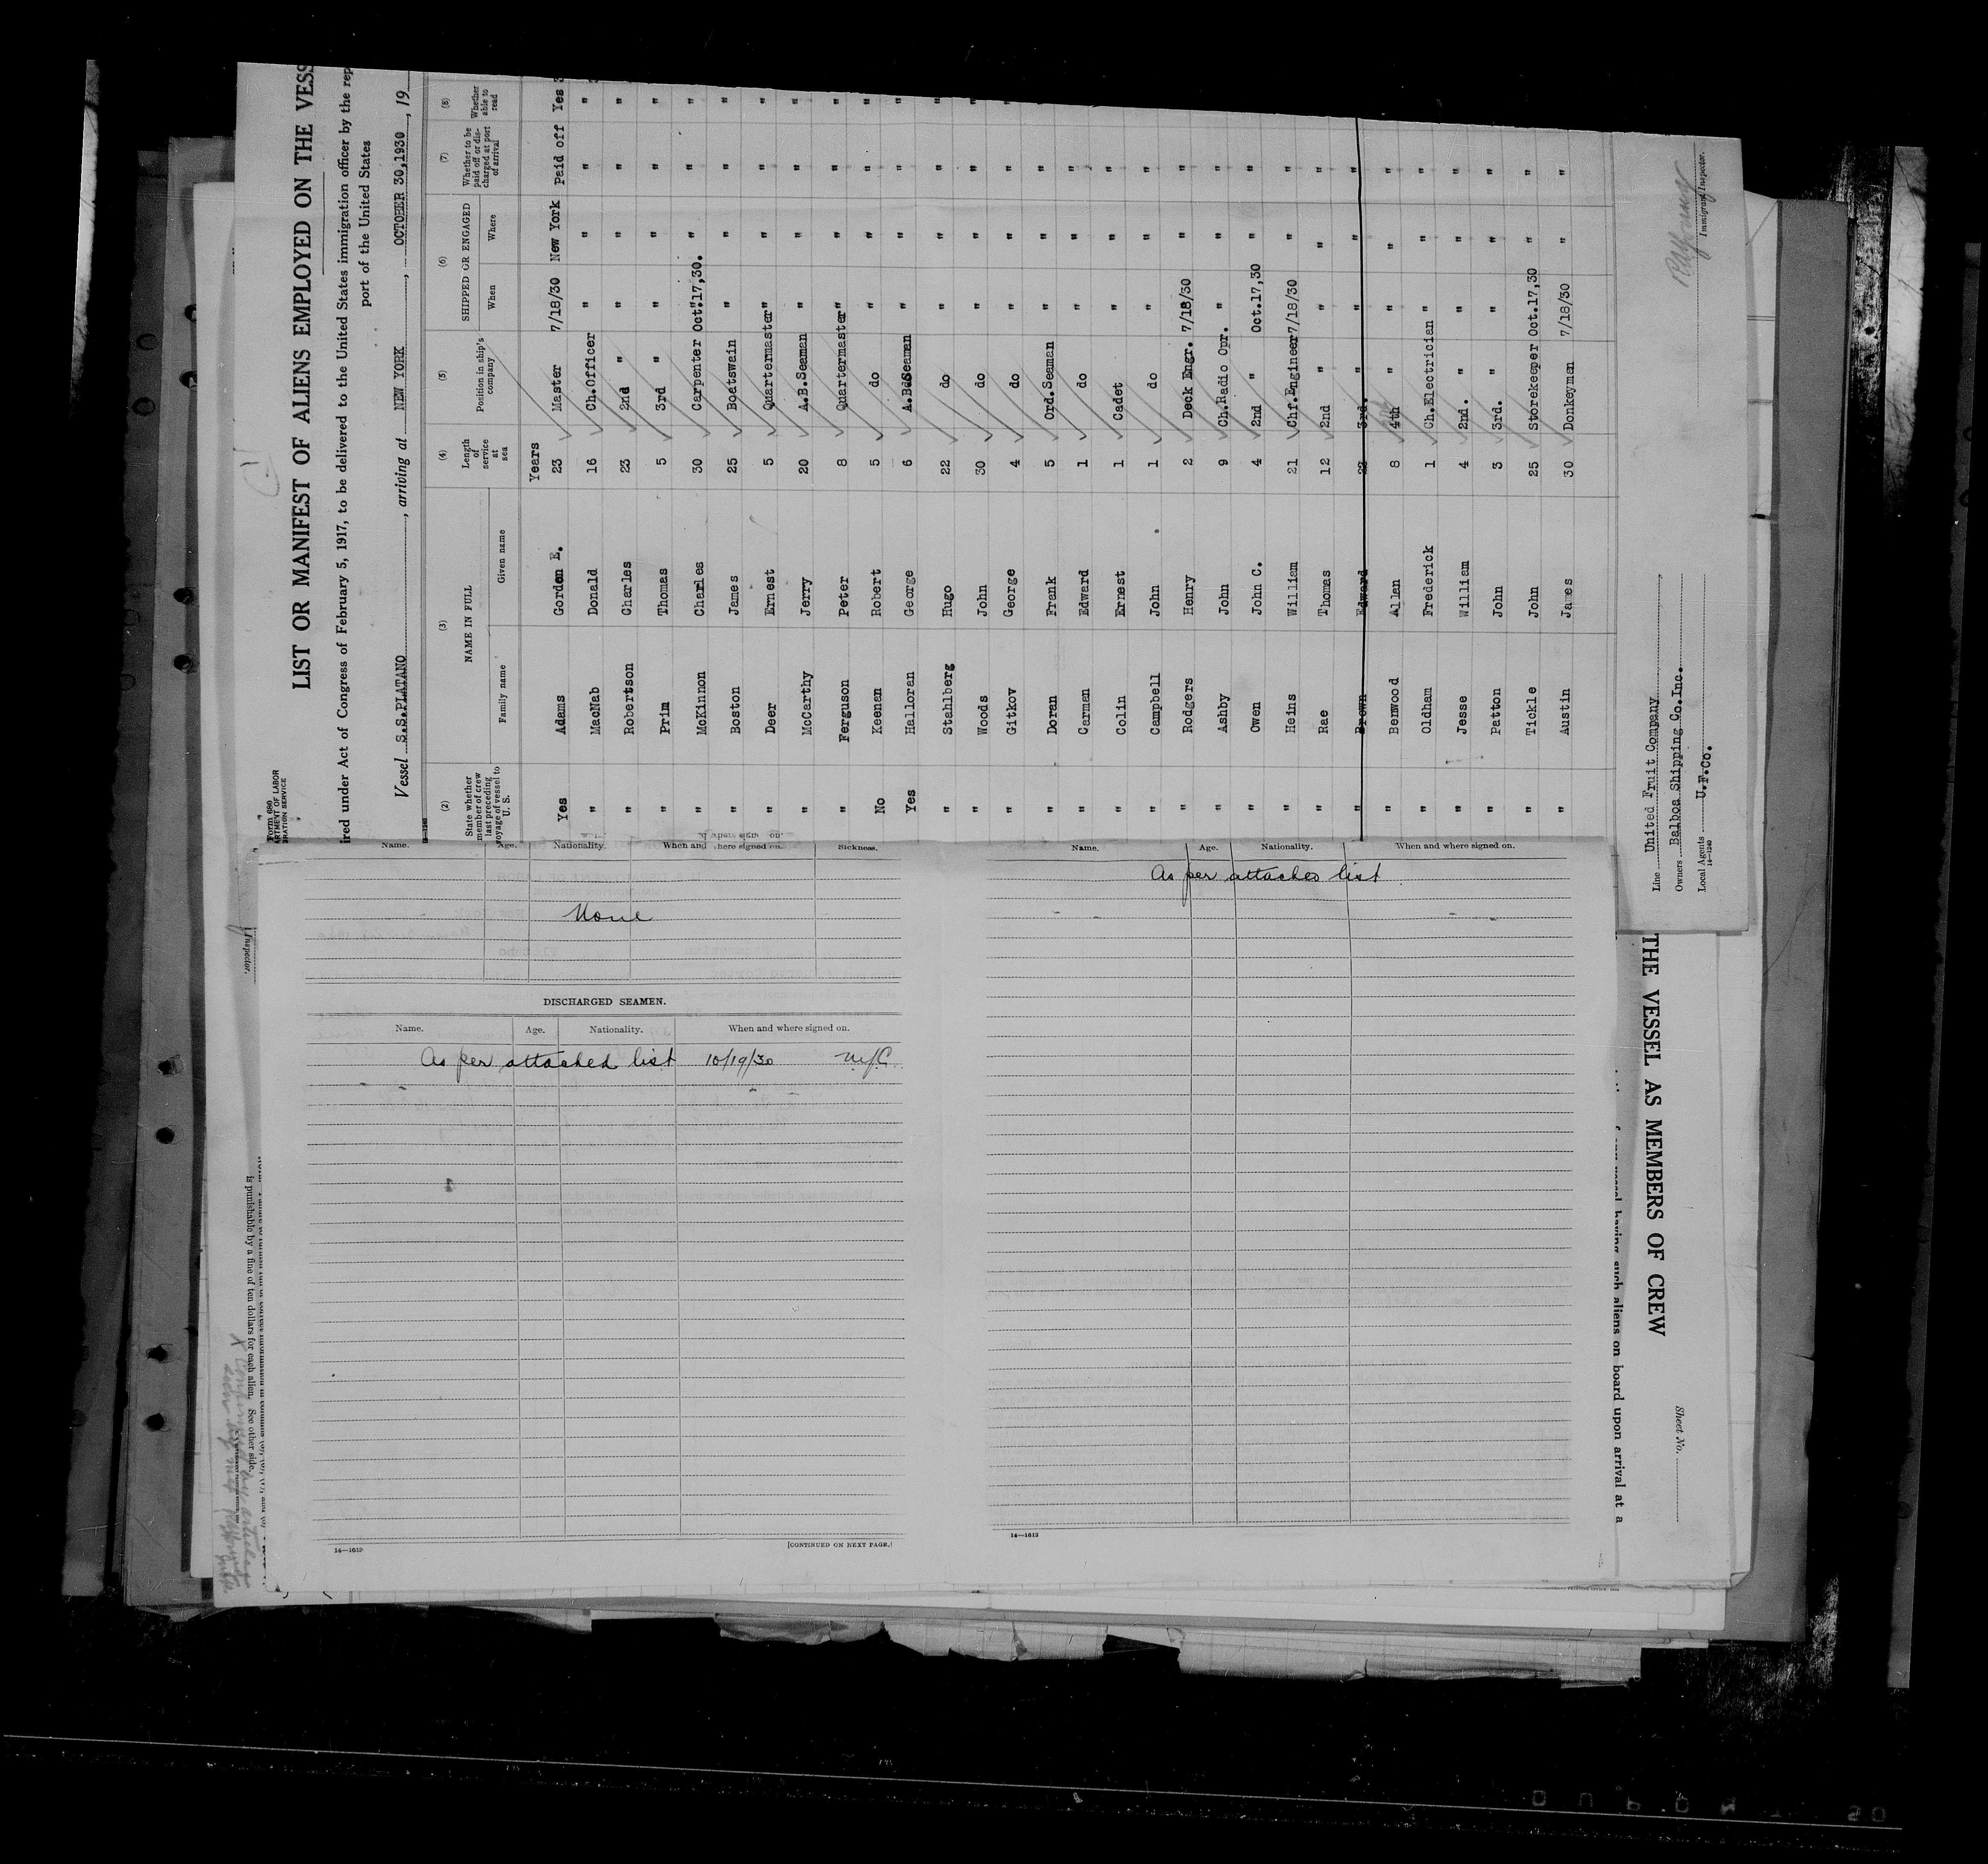 LIST OR MANIFEST OF ALIENS EMPLOYED ON THE VESS
ired under Act of Congress of February 5, 1917, to be delivered to the United States immigration officer by the rep
port of the United States
Vessel S.S.PLATANO, arriving at NEW YORK, OCTOBER 30,1930, 19
(2) (3) (4) (5) (6) (7) (8)
State whether member of crew last preceding voyage of vessel to U. S. NAME IN FULL Length of service at sea Position in ship's company SHIPPED OR ENGAGED Whether to be paid off or discharged at port of arrival Whether able to read
Family name Given name When Where
Years
Yes Adams Gorden E. 23 Master 7/18/30 New York Paid off Yes
" MacNab Donald 16 Ch.Officer " " " "
" Robertson Charles 23 2nd " " " " "
" Prim Thomas 5 3rd " " " " "
" McKinnon Charles 30 Carpenter Oct.17,30. " " "
" Boston James 25 Boatswain " " " "
" Deer Ernest 5 Quartermaster " " " "
" McCarthy Jerry 20 A.B.Seaman " " " "
" Ferguson Peter 8 Quartermaster " " " "
No Keenan Robert 5 do " " " "
Yes Halloran George 6 A.B.Seaman " " " "
" Stahlberg Hugo 22 do " " " "
" Woods John 30 do " " " "
" Gitkov George 4 do " " " "
" Doran Frank 5 Ord.Seaman " " "
" Carman Edward 1 do " " "
" Colin Ernest 1 Cadet " " "
" Campbell John 1 do " " "
" Rodgers Henry 2 Deck Engr. 7/18/30 " "
" Ashby John 9 Ch.Radio Opr. " " "
" Owen John C. 4 2nd " Oct.17,30 " "
" Heins William 21 Chf.Engineer 7/18/30 " "
" Rae Thomas 12 2nd " " " "
" Brown Edward 22 3rd. " " " "
" Benwood Allan 8 4th " " " "
" Oldham Frederick 1 Ch.Electrician " " "
" Jesse William 4 2nd. " " " "
" Patton John 3 3rd. " " " "
" Tickle John 25 Storekeeper Oct.17,30 " "
" Austin James 30 Donkeyman 7/18/30 " "
Line United Fruit Company
Owners Balboa Shipping Co.Inc.
Local Agents U.F.Co.
14—1240
Immigrant Inspector.
Name. Age. Nationality. When and where signed on. Sickness.
None
DISCHARGED SEAMEN.
Name. Age. Nationality. When and where signed on.
As per attached list 10/19/30 NYC
14—1613
[CONTINUED ON NEXT PAGE.]
Name. Age. Nationality. When and where signed on.
As per attached list
14—1613
THE VESSEL AS MEMBERS OF CREW
having such aliens on board upon arrival at a
Sheet No.
Inspector.
is punishable by a fine of ten dollars for each alien. See other side.
DUPONT 50